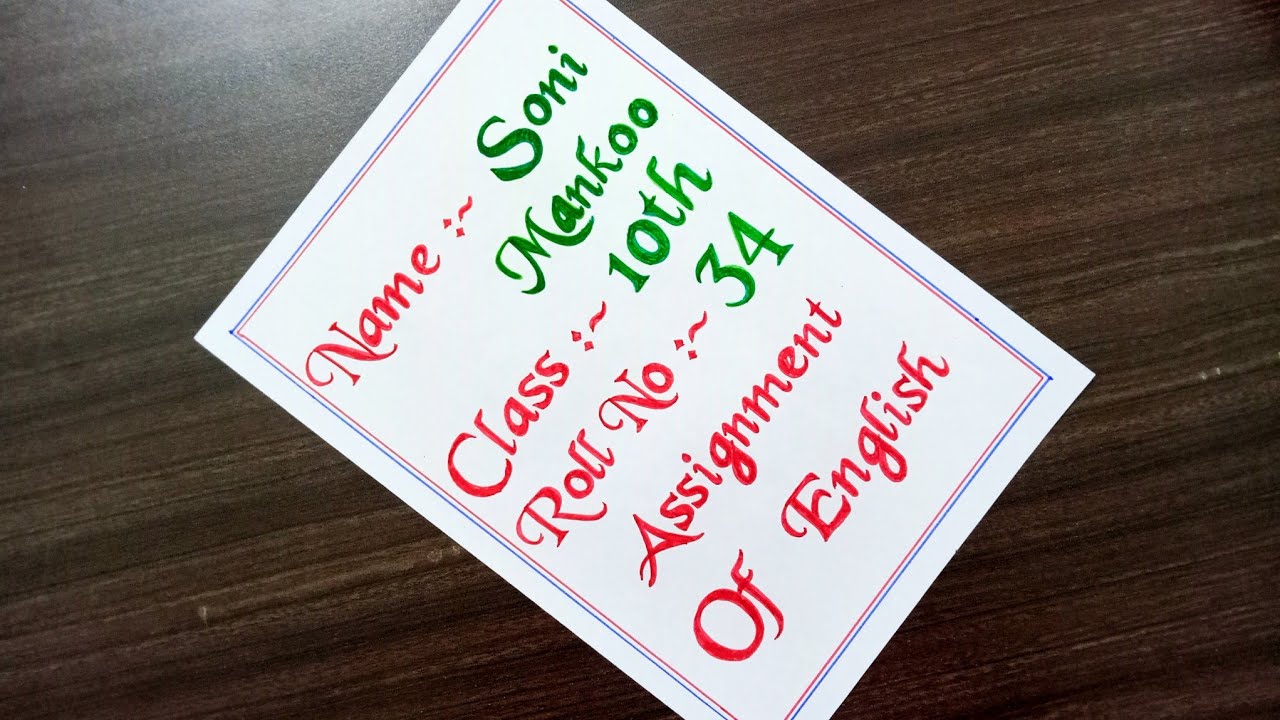 Name :~ Soni
Mankoo
Class :~ 10th
Roll No :~ 34
Assignment
Of English